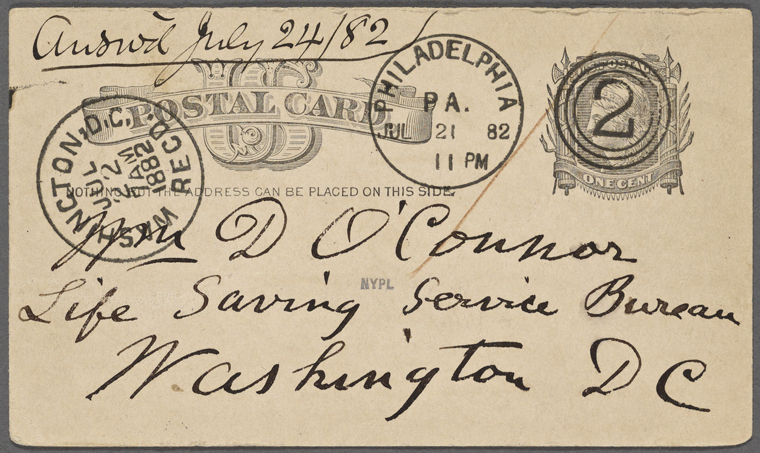 Answd July 24/82
US
POSTAL CARD
PHILADELPHIA
PA.
JUL 21 82
11 PM
2
U.S. POSTAGE
ONE CENT
WASHINGTON, D.C. RECD.
JUL
22
AM
1882
NOTHING BUT THE ADDRESS CAN BE PLACED ON THIS SIDE.
Wm D O'Connor
NYPL
Life Saving Service Bureau
Washington DC